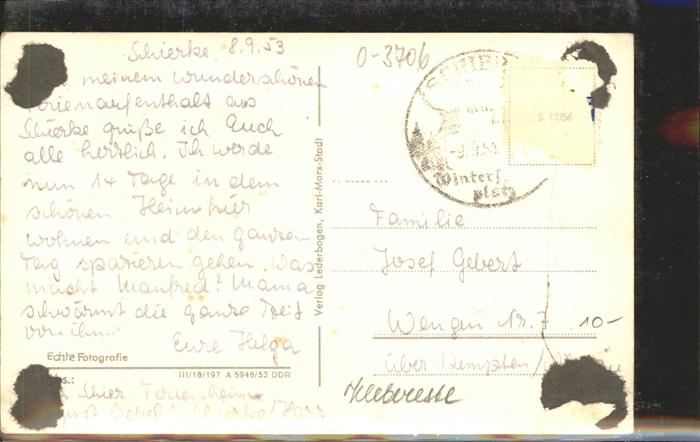 Schierke, 8.9.53
meinem wunderschönen
Ferienaufenthalt aus
Schierke grüße ich Euch
alle herzlich. Ich werde
nun 14 Tage in dem
schönen Heim hier
wohnen und den ganzen
Tag spazieren gehen. Was
macht Manfred? Mama
schwärmt die ganze Zeit
von ihm.
Eure Helga
Echte Fotografie
III/18/197 A 5946/53 DDR
Abs.:
Schier Ferienheim
Schierke/Harz
Verlag Lederbogen, Karl-Marx-Stadt
0-3706
SCHIER
-9.9.53
Winters
platz
S 12/56
Familie
Josef Gebert
Wengen Nr. 7
10-
über Kempten/
Kleberesse